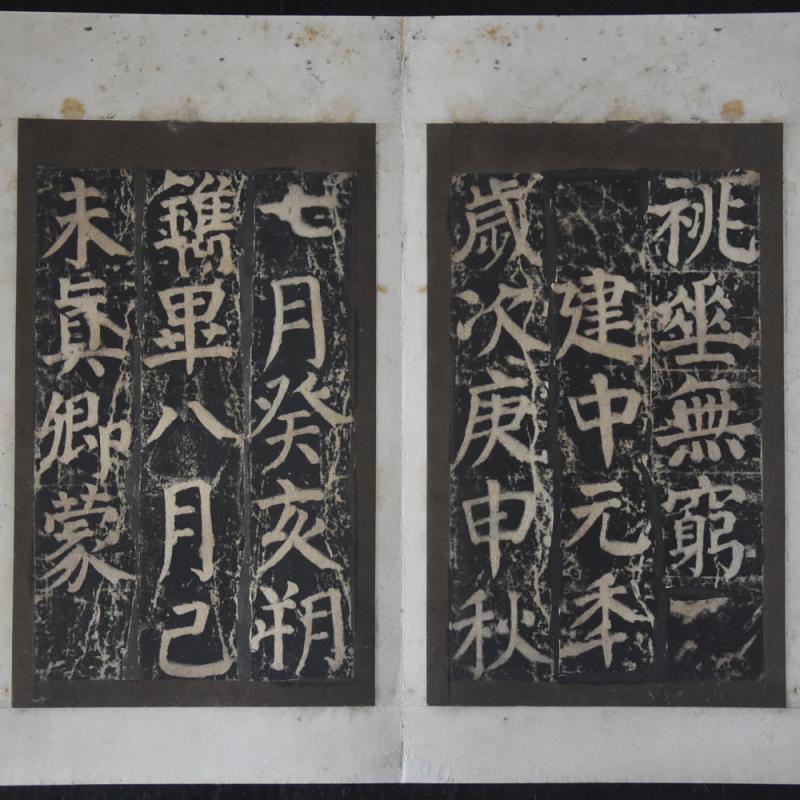 祧垂無窮
建中元秊
歲次庚申秋
七月癸亥朔
鐫畢八月己
未眞卿蒙